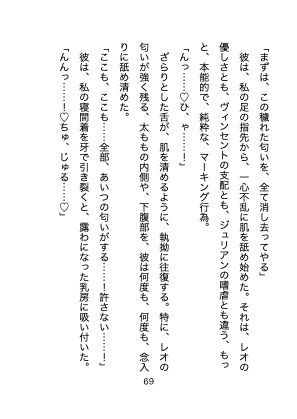 「まずは、この穢れた匂いを、全て消し去ってやる」
　彼は、私の足の指先から、一心不乱に肌を舐め始めた。それは、レオの
優しさとも、ヴィンセントの支配とも、ジュリアンの嗜虐とも違う、もっ
と、本能的で、純粋な、マーキング行為。
「んっ……♡ひ、ゃ……！」
　ざらりとした舌が、肌を清めるように、執拗に往復する。特に、レオの
匂いが強く残る、太ももの内側や、下腹部を、彼は何度も、何度も、念入
りに舐め清めた。
「ここも、ここも……全部、あいつの匂いがする……！許さない……！」
　彼は、私の寝間着を牙で引き裂くと、露わになった乳房に吸い付いた。
「んんっ……！♡ちゅ、じゅる……♡」
69